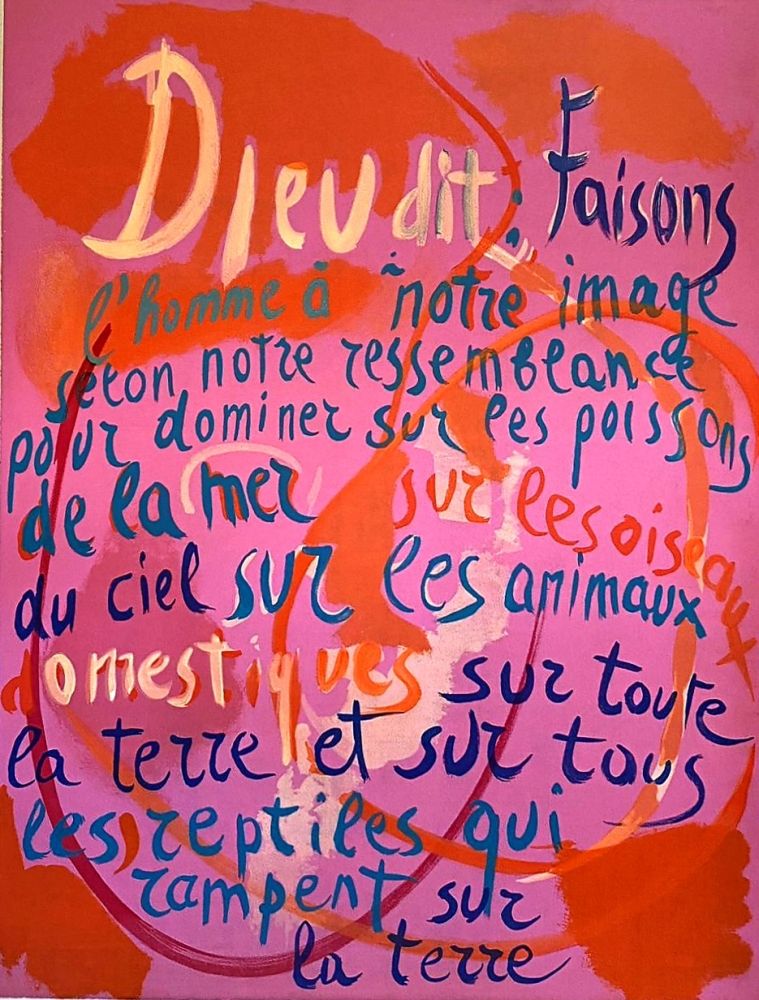 Dieu dit: Faisons
l'homme à notre image
selon notre ressemblance
pour dominer sur les poissons
de la mer sur les oiseaux
du ciel sur les animaux
domestiques sur toute
la terre et sur tous
les reptiles qui
rampent sur
la terre